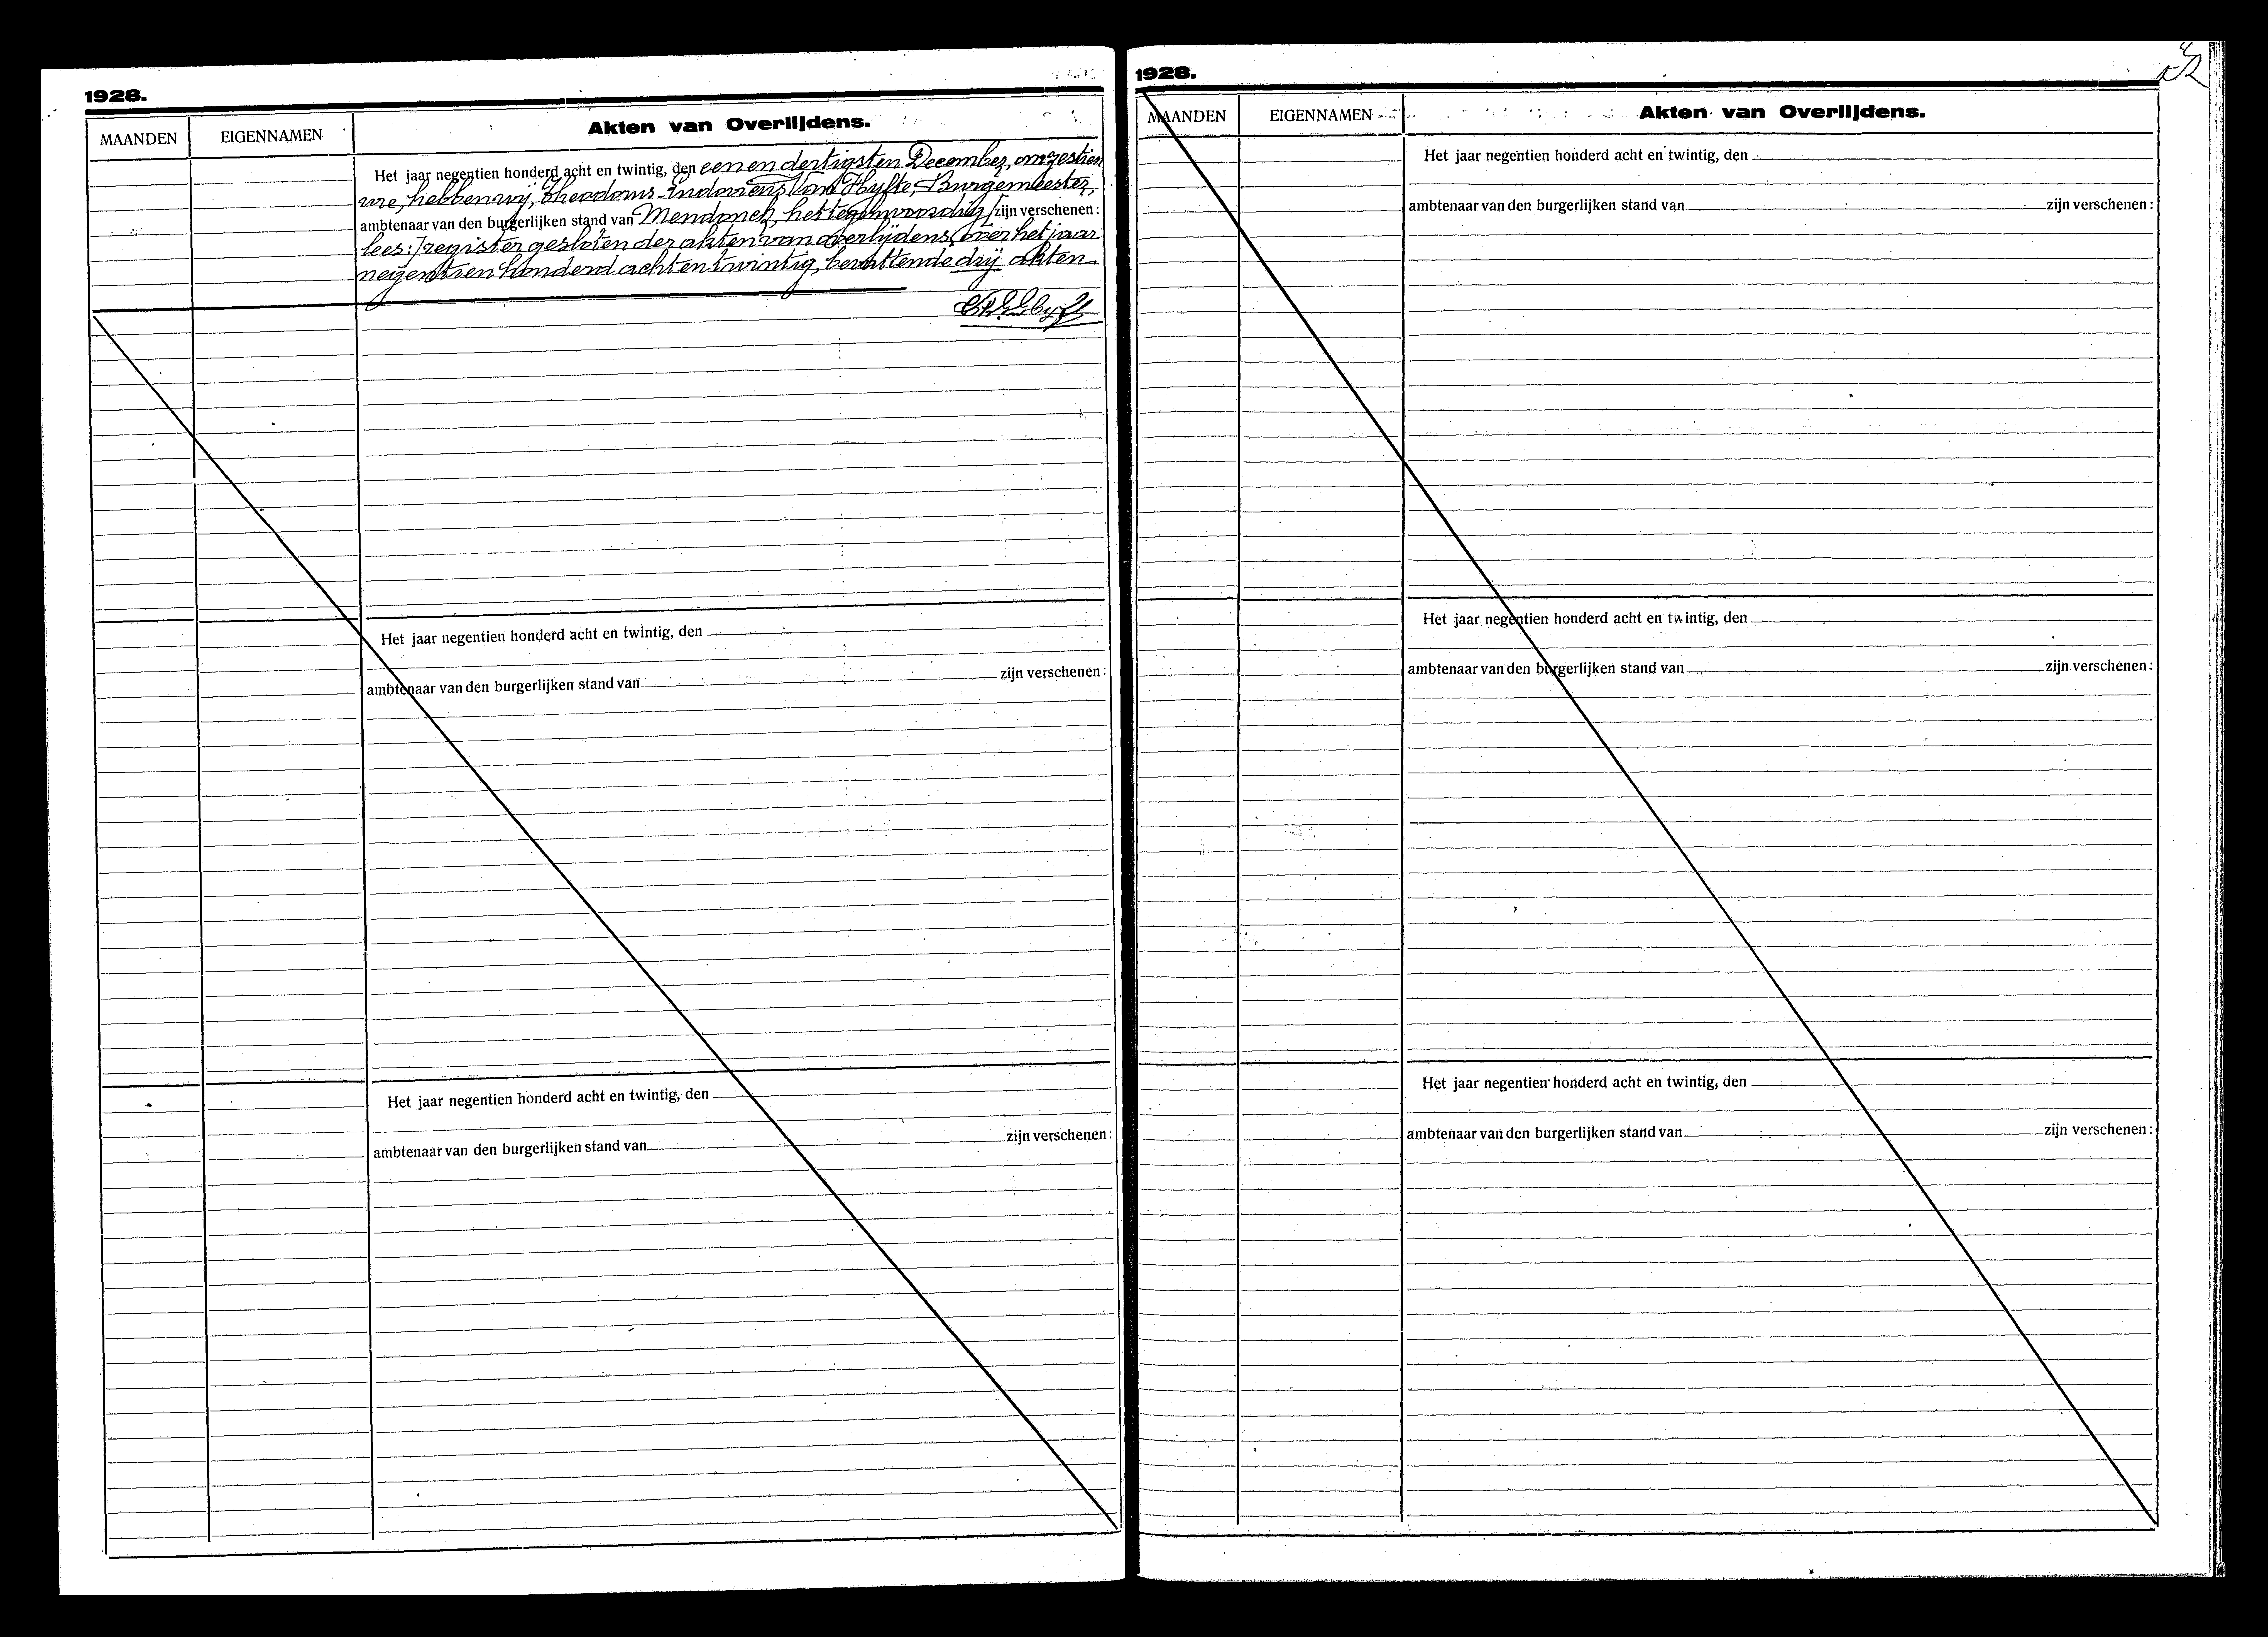 1928.
MAANDEN EIGENNAMEN Akten van Overlijdens.
Het jaar negentien honderd acht en twintig, den een en dertigsten December, om zestien
ure, hebben wij, Theodorus Ludovicus Van Hyfte, Burgemeester,
ambtenaar van den burgerlijken stand van Mendonck, het tegenwoordig [zijn verschenen:
lees:] register gesloten der akten van overlijdens, over het jaar
negentien honderd acht en twintig, bevattende drij akten.
Het jaar negentien honderd acht en twintig, den
ambtenaar van den burgerlijken stand van zijn verschenen:
Het jaar negentien honderd acht en twintig, den
ambtenaar van den burgerlijken stand van zijn verschenen:
1928.
MAANDEN EIGENNAMEN Akten van Overlijdens.
Het jaar negentien honderd acht en twintig, den
ambtenaar van den burgerlijken stand van zijn verschenen:
Het jaar negentien honderd acht en twintig, den
ambtenaar van den burgerlijken stand van zijn verschenen:
Het jaar negentien honderd acht en twintig, den
ambtenaar van den burgerlijken stand van zijn verschenen: